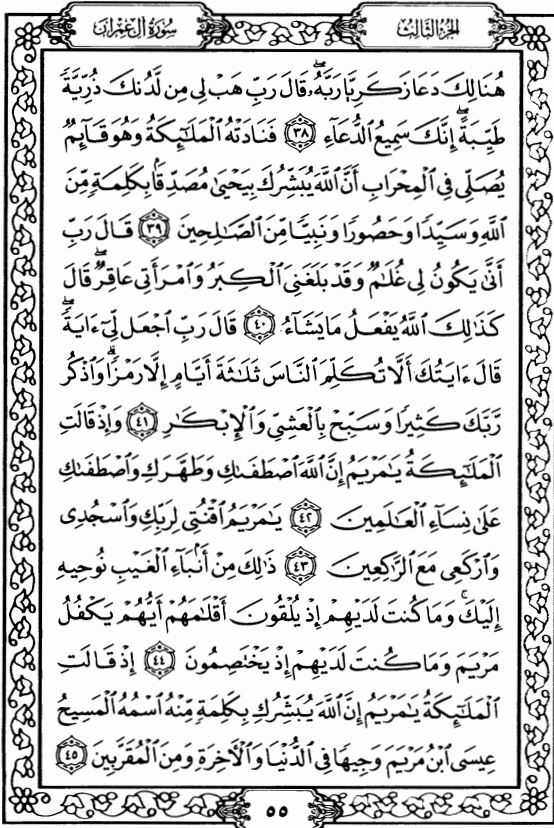 سُورَةُ آلِ عِمْرَانَ
الجُزْءُ الثَّالِثُ
هُنَالِكَ دَعَا زَكَرِيَّا رَبَّهُۥۖ قَالَ رَبِّ هَبْ لِى مِن لَّدُنكَ ذُرِّيَّةً
طَيِّبَةًۖ إِنَّكَ سَمِيعُ ٱلدُّعَآءِ ٣٨ فَنَادَتْهُ ٱلْمَلَٰٓئِكَةُ وَهُوَ قَآئِمٌ
يُصَلِّى فِى ٱلْمِحْرَابِ أَنَّ ٱللَّهَ يُبَشِّرُكَ بِيَحْيَىٰ مُصَدِّقًۢا بِكَلِمَةٍ مِّنَ
ٱللَّهِ وَسَيِّدًا وَحَصُورًا وَنَبِيًّا مِّنَ ٱلصَّٰلِحِينَ ٣٩ قَالَ رَبِّ
أَنَّىٰ يَكُونُ لِى غُلَٰمٌ وَقَدْ بَلَغَنِىَ ٱلْكِبَرُ وَٱمْرَأَتِى عَاقِرٌۖ قَالَ
كَذَٰلِكَ ٱللَّهُ يَفْعَلُ مَا يَشَآءُ ٤٠ قَالَ رَبِّ ٱجْعَل لِّىٓ ءَايَةًۖ
قَالَ ءَايَتُكَ أَلَّا تُكَلِّمَ ٱلنَّاسَ ثَلَٰثَةَ أَيَّامٍ إِلَّا رَمْزًاۗ وَٱذْكُر
رَّبَّكَ كَثِيرًا وَسَبِّحْ بِٱلْعَشِىِّ وَٱلْإِبْكَٰرِ ٤١ وَإِذْ قَالَتِ
ٱلْمَلَٰٓئِكَةُ يَٰمَرْيَمُ إِنَّ ٱللَّهَ ٱصْطَفَىٰكِ وَطَهَّرَكِ وَٱصْطَفَىٰكِ
عَلَىٰ نِسَآءِ ٱلْعَٰلَمِينَ ٤٢ يَٰمَرْيَمُ ٱقْنُتِى لِرَبِّكِ وَٱسْجُدِى
وَٱرْكَعِى مَعَ ٱلرَّٰكِعِينَ ٤٣ ذَٰلِكَ مِنْ أَنۢبَآءِ ٱلْغَيْبِ نُوحِيهِ
إِلَيْكَۚ وَمَا كُنتَ لَدَيْهِمْ إِذْ يُلْقُونَ أَقْلَٰمَهُمْ أَيُّهُمْ يَكْفُلُ
مَرْيَمَ وَمَا كُنتَ لَدَيْهِمْ إِذْ يَخْتَصِمُونَ ٤٤ إِذْ قَالَتِ
ٱلْمَلَٰٓئِكَةُ يَٰمَرْيَمُ إِنَّ ٱللَّهَ يُبَشِّرُكِ بِكَلِمَةٍ مِّنْهُ ٱسْمُهُ ٱلْمَسِيحُ
عِيسَى ٱبْنُ مَرْيَمَ وَجِيهًا فِى ٱلدُّنْيَا وَٱلْءَاخِرَةِ وَمِنَ ٱلْمُقَرَّبِينَ ٤٥
٥٥